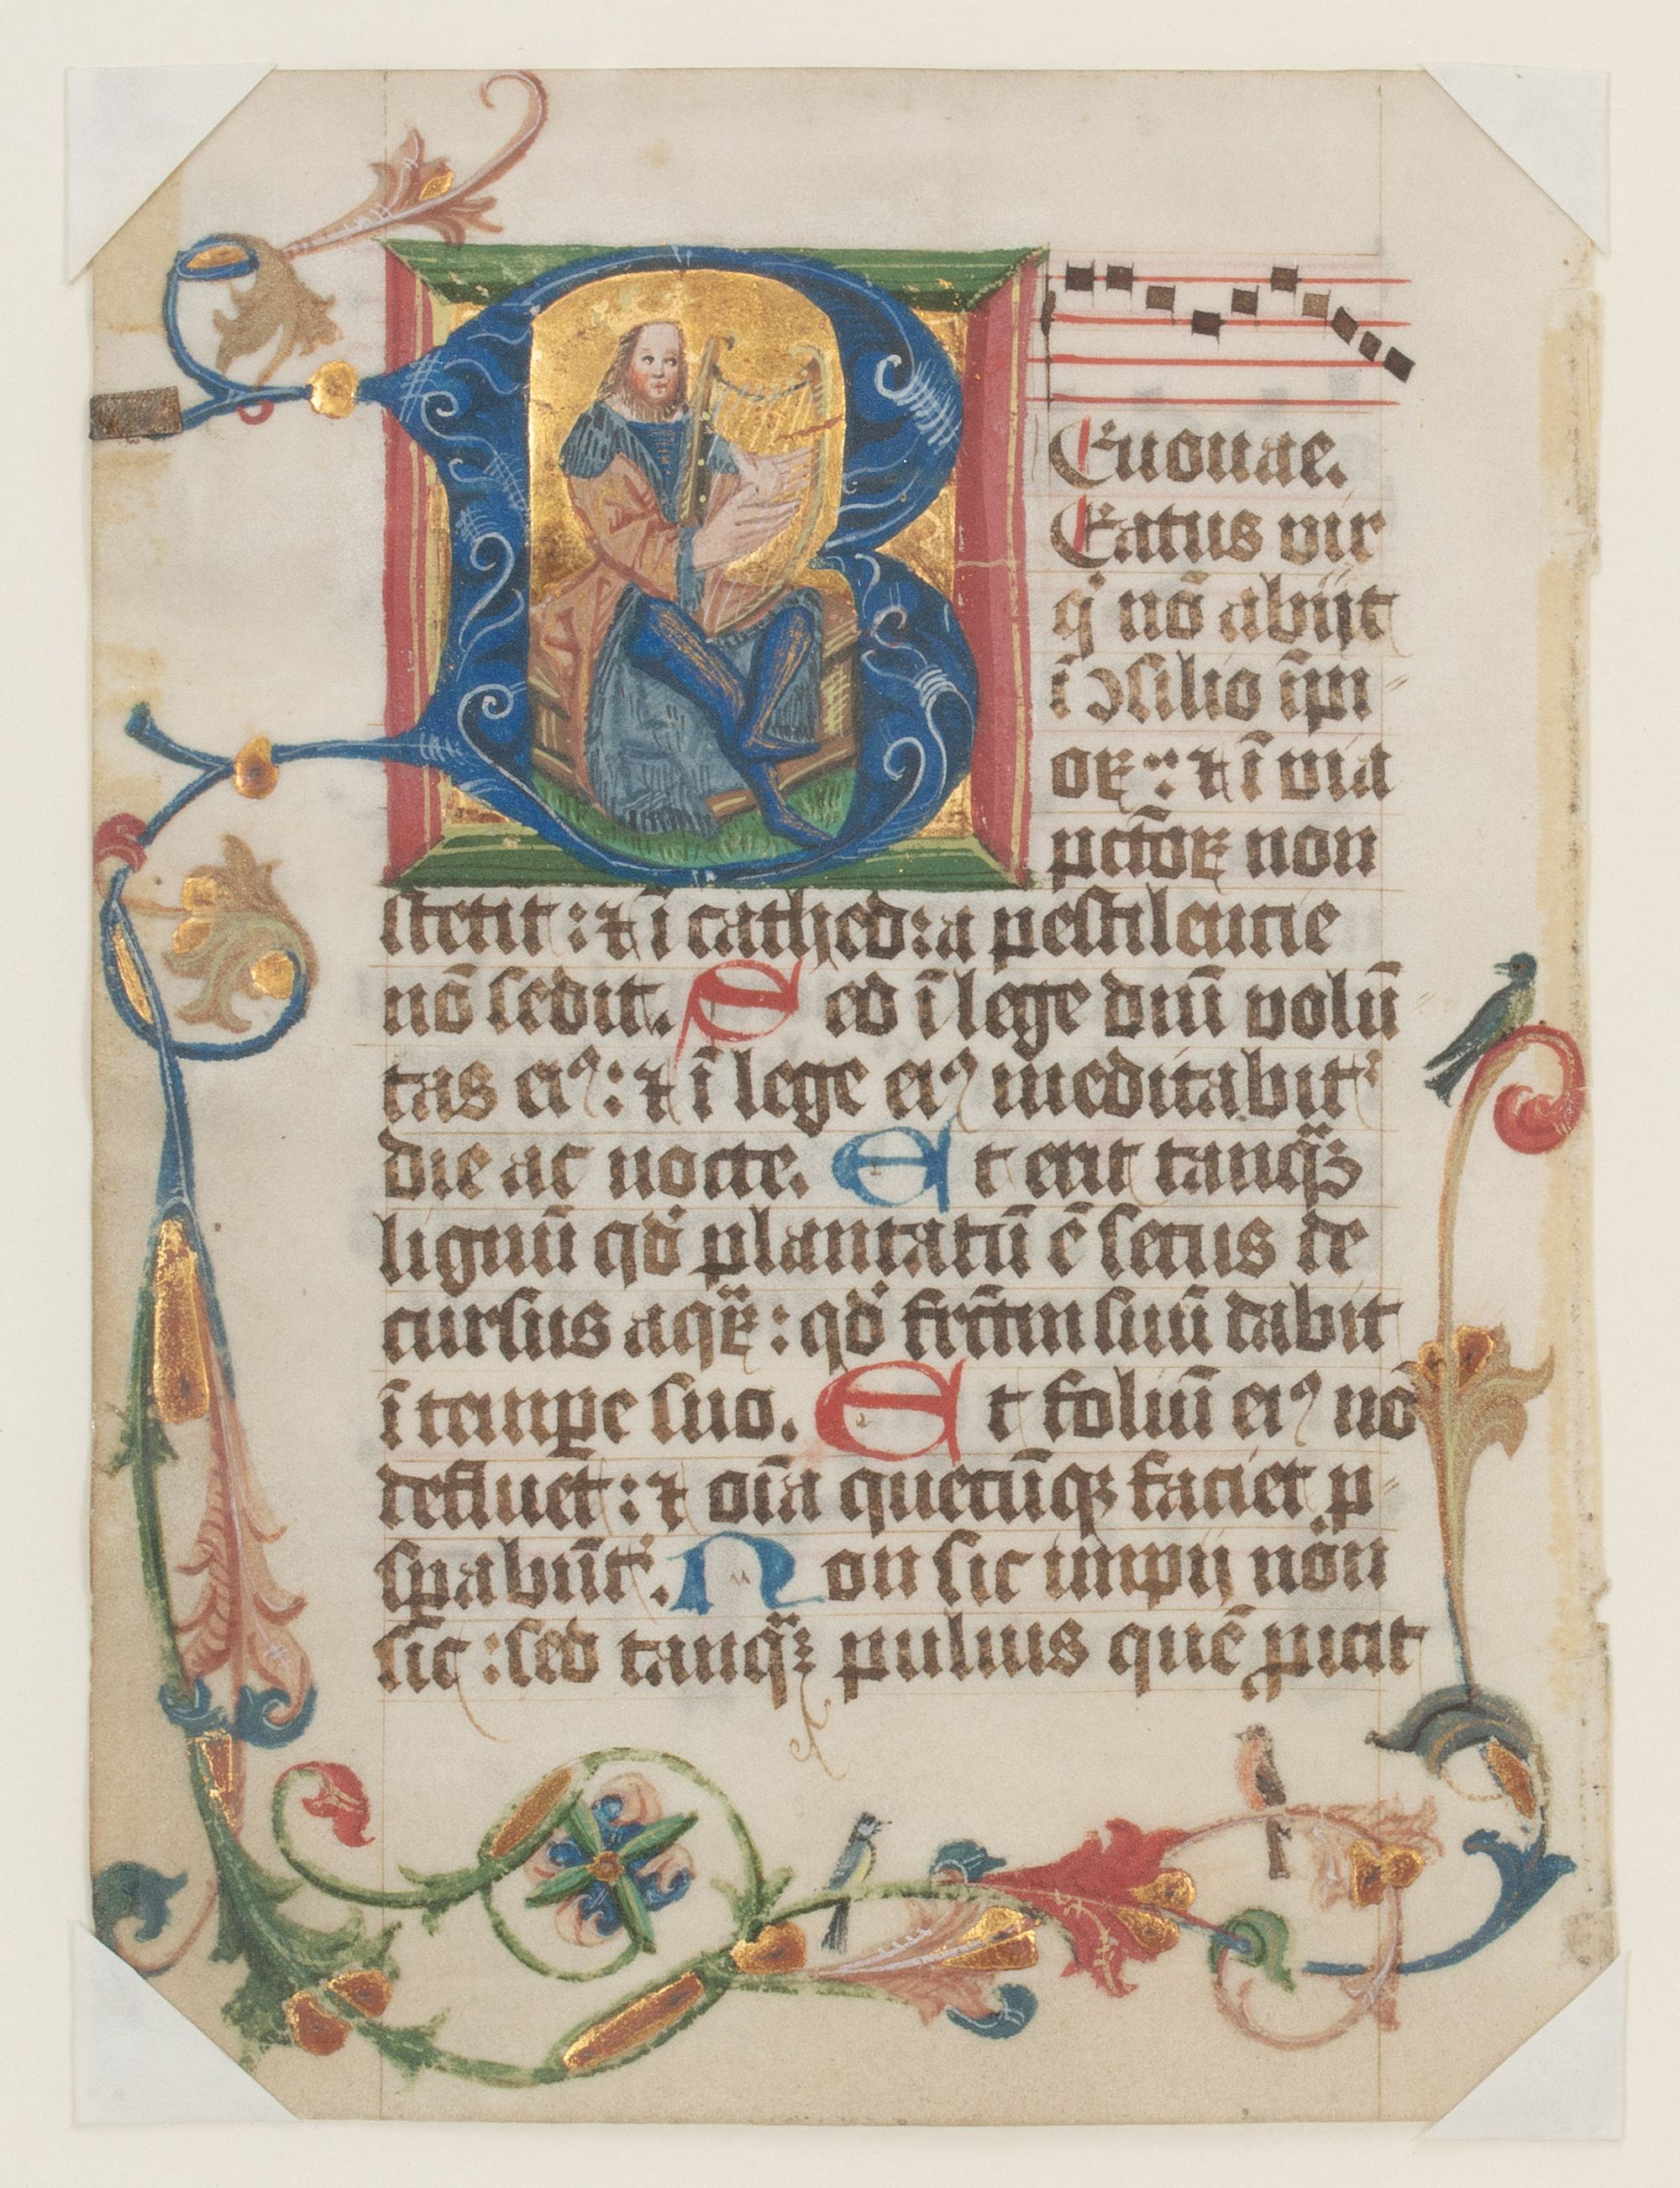 Euouae.
B Eatus vir
q̇ nō abijt
ī ɔsilio īpi
oꝝ: ⁊ ī via
pctōꝝ non
stetit: ⁊ ī cathedra pestilencie
nō sedit. Sed ī lege dnī volū
tas eiꝰ: ⁊ ī lege eiꝰ meditabit᷑
die ac nocte. Et erit tanqᷓꝫ
lignū qd̓ plantatū ē secus de
cursus aqᷓꝝ: qd̓ frūctm suū dabit
ī tempe suo. Et foliū eiꝰ nō
defluet: ⁊ oīa quecūqꝫ faciet p
spabūt᷑. Non sic impij nön
sic: sed tanqᷓꝫ puluis quē ꝓicit